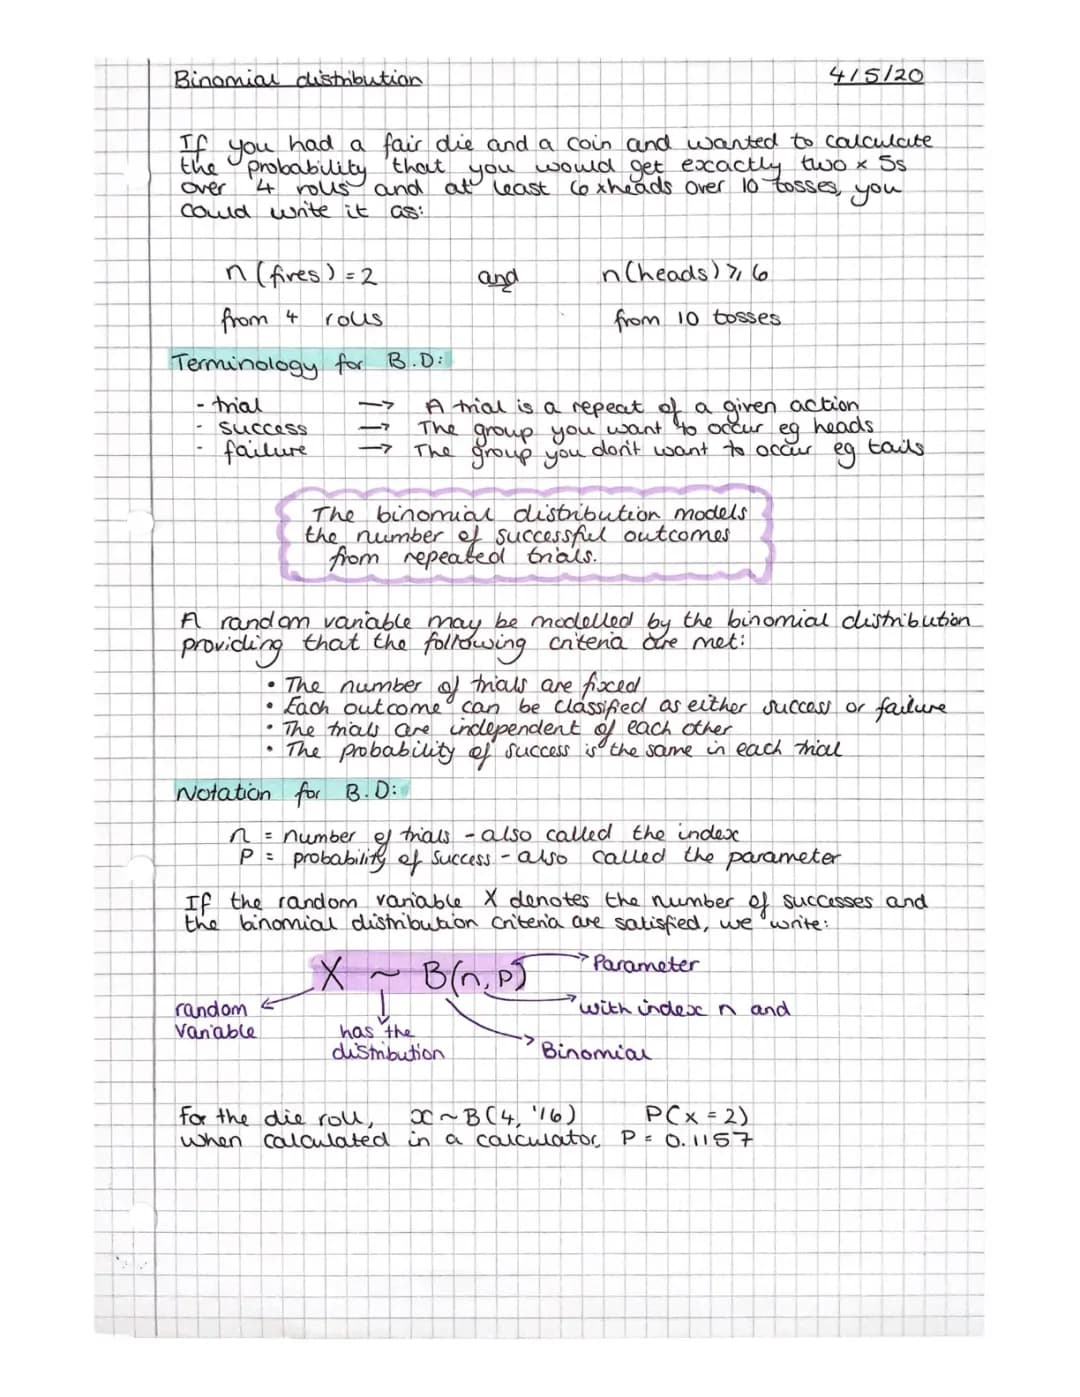 Binomial distribution 4/5/20
If you had a fair die and a coin and wanted to calculate
the probability that you would get exactly two x 5s
over 4 rolls and at least 6 x heads over 10 tosses, you
could write it as:
n (fives) = 2 and n(heads) ⩾ 6
from 4 rolls from 10 tosses
Terminology for B.D:
- trial → A trial is a repeat of a given action
- success → The group you want to occur eg heads
- failure → The group you don't want to occur eg tails
The binomial distribution models
the number of successful outcomes
from repeated trials.
A random variable may be modelled by the binomial distribution
providing that the following criteria are met:
• The number of trials are fixed
• Each outcome can be classified as either success or failure
• The trials are independent of each other
• The probability of success is the same in each trial
Notation for B.D:
n = number of trials - also called the index
P = probability of success - also called the parameter
If the random variable X denotes the number of successes and
the binomial distribution criteria are satisfied, we write:
X ~ B(n, p) Parameter
random with index n and
variable has the
distribution Binomial
For the die roll, x ~ B(4, 1/6) P(x = 2)
when calculated in a calculator, P = 0.1157